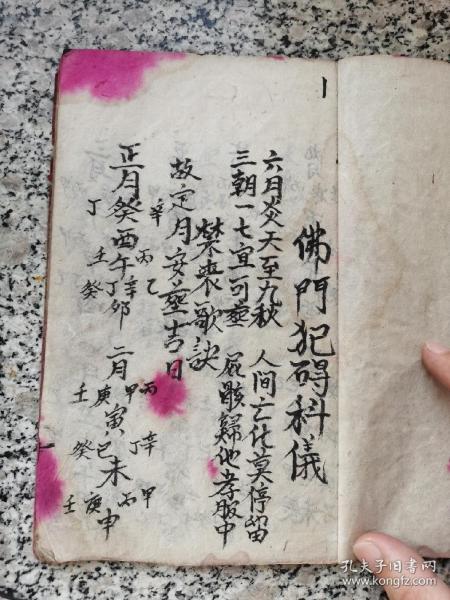 佛門犯碍科儀
六月炎天至九秋 人间亡化莫停留
三朝一七宜可塟 屍骸歸地孝服中
禁喪歌訣
故定月安塟吉日
正月癸酉午卯 二月寅未申
辛 丙 乙 丙 甲 辛 丁 甲 丙
丁 壬 癸 丁 辛 庚 壬 巳 癸 庚 壬
孔夫子旧书网
www.kongfz.com